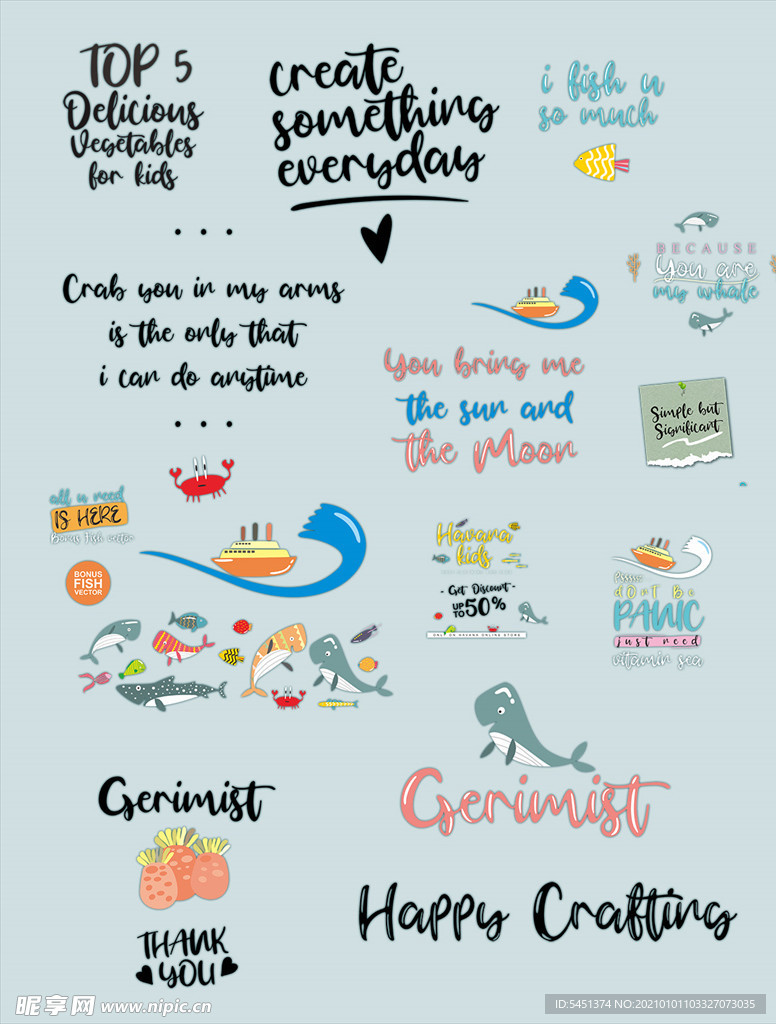 TOP 5
Delicious
Vegetables
for kids
create
something
everyday
i fish u
so much
...
Crab you in my arms
is the only that
i can do anytime
...
BECAUSE
You are
my whale
You bring me
the sun and
the Moon
Simple but
Significant
all u need
IS HERE
Bonus Fish vector
BONUS
FISH
VECTOR
Havana
kids
- Get Discount -
UP TO 50%
ONLY ON HAVANA ONLINE STORE
Pssssc
dOnT Be
PANIC
just need
vitamin sea
Gerimist
Gerimist
THANK
YOU
Happy Crafting
昵享网 www.nipic.cn
ID:5451374 NO:20210101103327073035